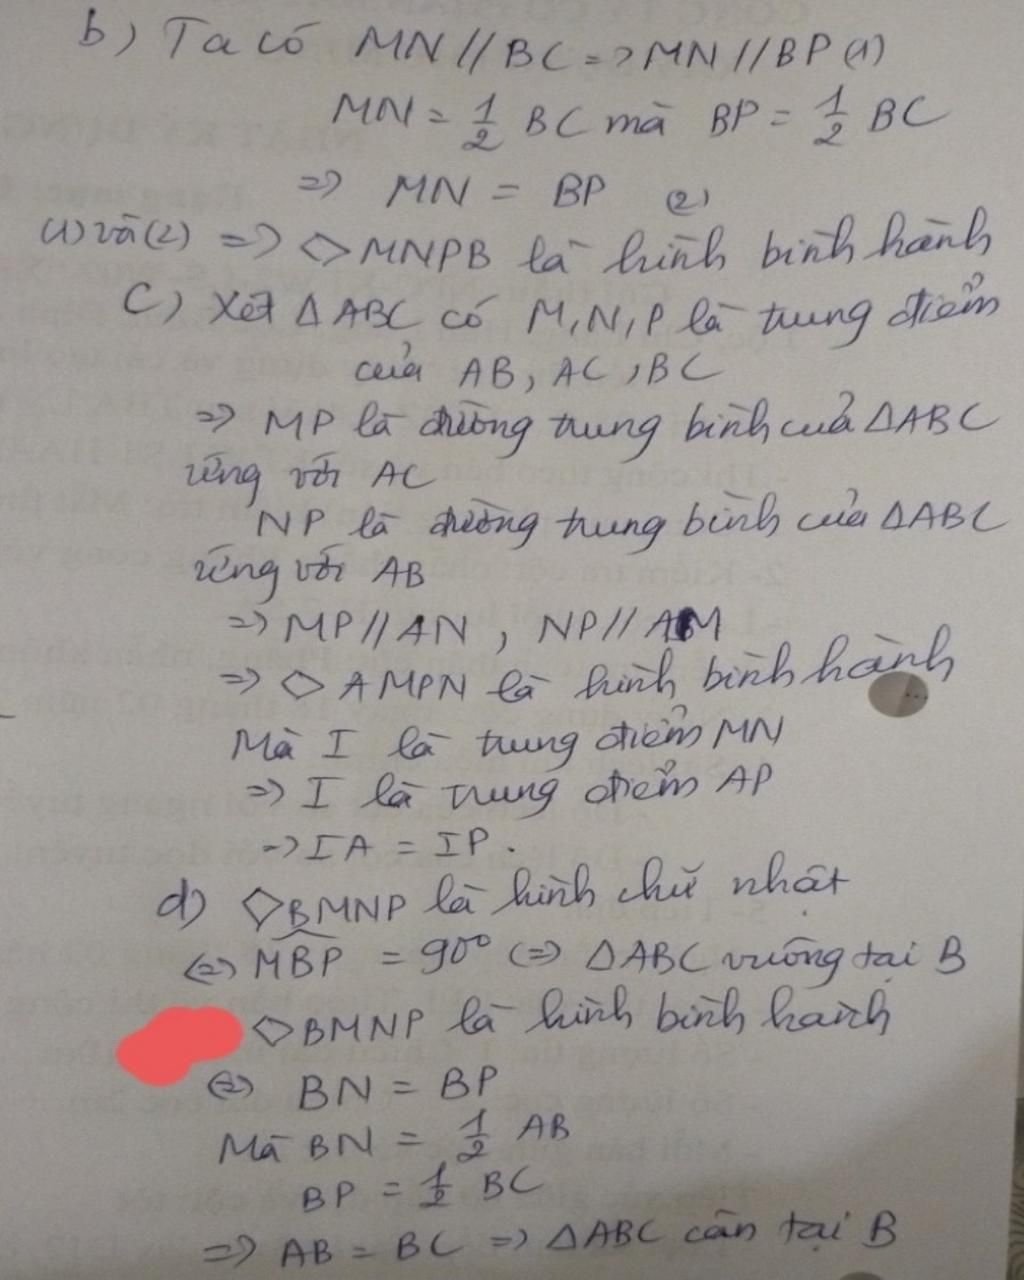 b) Ta có MN // BC => MN // BP (1)
MN = 1/2 BC mà BP = 1/2 BC
=> MN = BP (2)
(1) và (2) => ◇MNPB là hình bình hành
c) Xét ΔABC có M, N, P là trung điểm
của AB, AC, BC
=> MP là đường trung bình của ΔABC
ứng với AC
NP là đường trung bình của ΔABC
ứng với AB
=> MP // AN, NP // AM
=> ◇AMPN là hình bình hành
Mà I là trung điểm MN
=> I là trung điểm AP
-> IA = IP.
d) ◇BMNP là hình chữ nhật
<=> MBP = 90° <=> ΔABC vuông tại B
◇BMNP là hình bình hành
<=> BN = BP
Mà BN = 1/2 AB
BP = 1/2 BC
=> AB = BC => ΔABC cân tại B